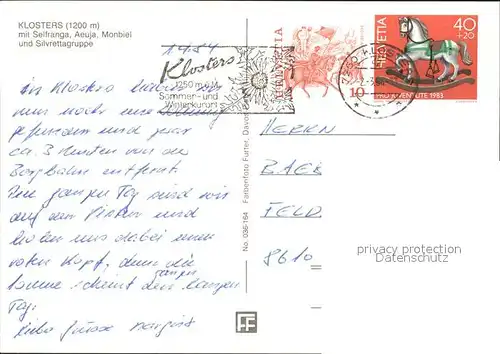 KLOSTERS (1200 m)
mit Selfranga, Aeuja, Monbiel
und Silvrettagruppe
1984
Klosters
1250 m ü. M.
Sommer- und
Winterkurort
HELVETIA
10
HELVETIA
40
+20
PRO JUVENTUTE 1983
In Klosters haben wir
uns noch eine
gefunden und zwar
ca. 3 Minuten von der
Bergbahn entfernt.
Den ganzen Tag sind wir
auf den Pisten und
holen uns dabei einen
roten Kopf, denn die
Sonne scheint den ganzen
Tag.
Liebe Grüsse
No. 036/164
Farbenfoto Furter, Davos
HERRN
FELD
8610
privacy protection
Datenschutz